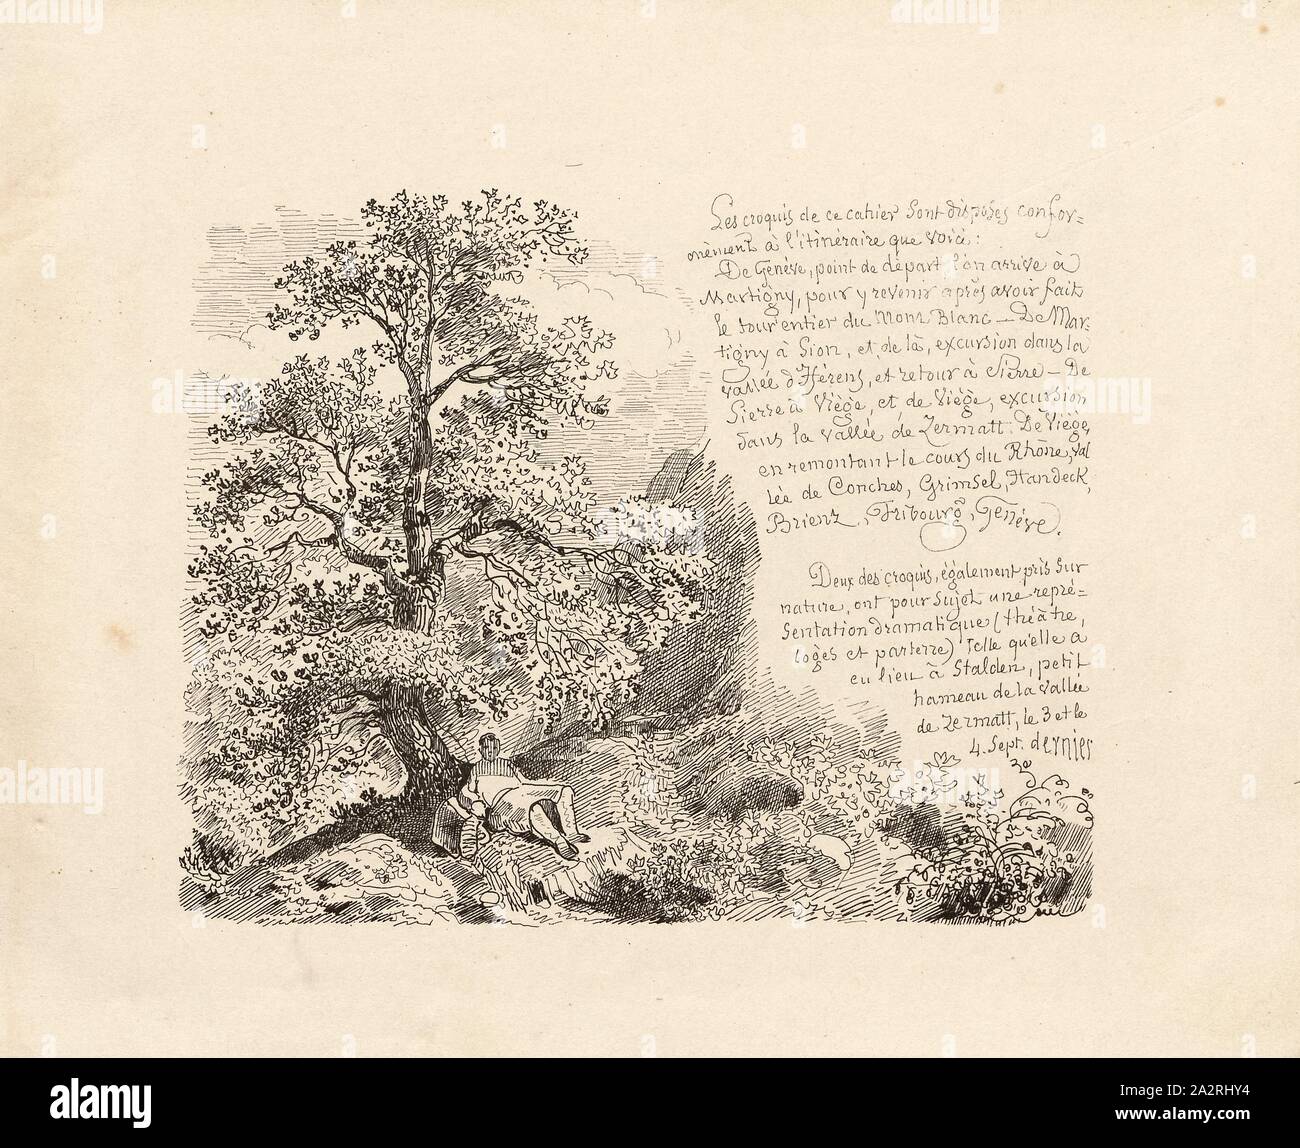 Les croquis de ce cahier sont disposés confor-
mément à l'itinéraire que voici :
De Genève, point de départ l'on arrive à
Martigny, pour y revenir après avoir fait
le tour entier du Mont Blanc — De Mar-
tigny à Sion, et de là, excursion dans la
vallée d'Hérens, et retour à Sierre — De
Sierre à Viège, et de Viège, excursion
dans la vallée de Zermatt. De Viège,
en remontant le cours du Rhône, val
lée de Conches, Grimsel, Handeck,
Brienz, Fribourg, Genève.
Deux des croquis, également pris sur
nature, ont pour sujet une repré-
sentation dramatique (théâtre,
loges et parterre) Telle qu'elle a
eu lieu à Stalden, petit
hameau de la vallée
de Zermatt, le 3 et le
4. Sept. dernier
alamy
alamy stock photo
alamy
Image ID: 2A2RHY4
www.alamy.com